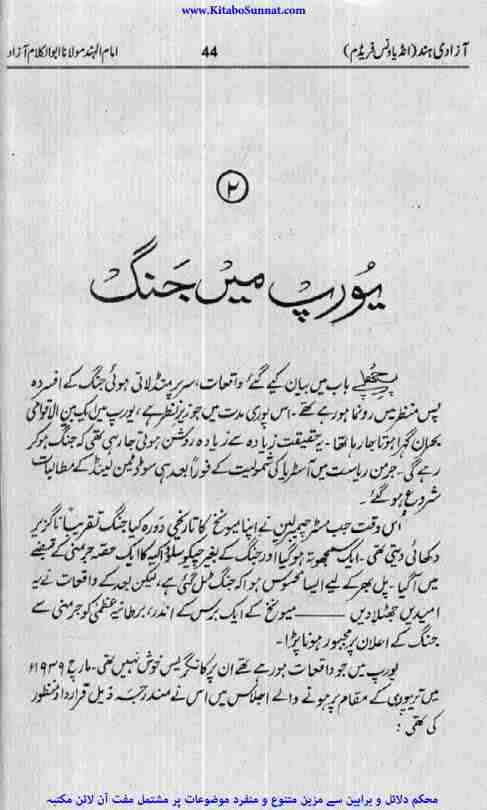 www.KitaboSunnat.com
آزادی ہند (انڈیا ونس فریڈم)
44
امام الہند مولانا ابوالکلام آزاد
۲
یورپ میں جنگ
پچھلے باب میں بیان کیے گئے واقعات، سر پر منڈلاتی ہوئی جنگ کے افسردہ
پس منظر میں رونما ہو رہے تھے۔ اس پوری مدت میں جو زیرِ نظر ہے، یورپ میں ایک بین الاقوامی
بحران گہرا ہوتا جا رہا تھا۔ یہ حقیقت زیادہ سے زیادہ روشن ہوتی جا رہی تھی کہ جنگ ہو کر
رہے گی۔ جرمن ریاست میں آسٹریا کی شمولیت کے فوراً بعد ہی سوڈیٹن لینڈ کے مطالبات
شروع ہو گئے۔
اس وقت جب مسٹر چیمبرلین نے اپنا میونخ کا تاریخی دورہ کیا جنگ تقریباً ناگزیر
دکھائی دیتی تھی۔ ایک سمجھوتہ ہو گیا اور جنگ کے بغیر چیکوسلوواکیہ کا ایک حصہ جرمنی کے قبضے
میں آگیا۔ پل بھر کے لیے ایسا محسوس ہوا کہ جنگ ٹل گئی ہے، لیکن بعد کے واقعات نے یہ
امیدیں جھٹلا دیں ——— میونخ کے ایک برس کے اندر، برطانیہ عظمیٰ کو جرمنی سے
جنگ کے اعلان پر مجبور ہونا پڑا۔
یورپ میں جو واقعات ہو رہے تھے ان پر کانگریس خوش نہیں تھی۔ مارچ ۱۹۳۹ء
میں تریپوری کے مقام پر ہونے والے اجلاس میں اس نے مندرجہ ذیل قرارداد منظور
کی تھی:
محکم دلائل و براہین سے مزین متنوع و منفرد موضوعات پر مشتمل مفت آن لائن مکتبہ